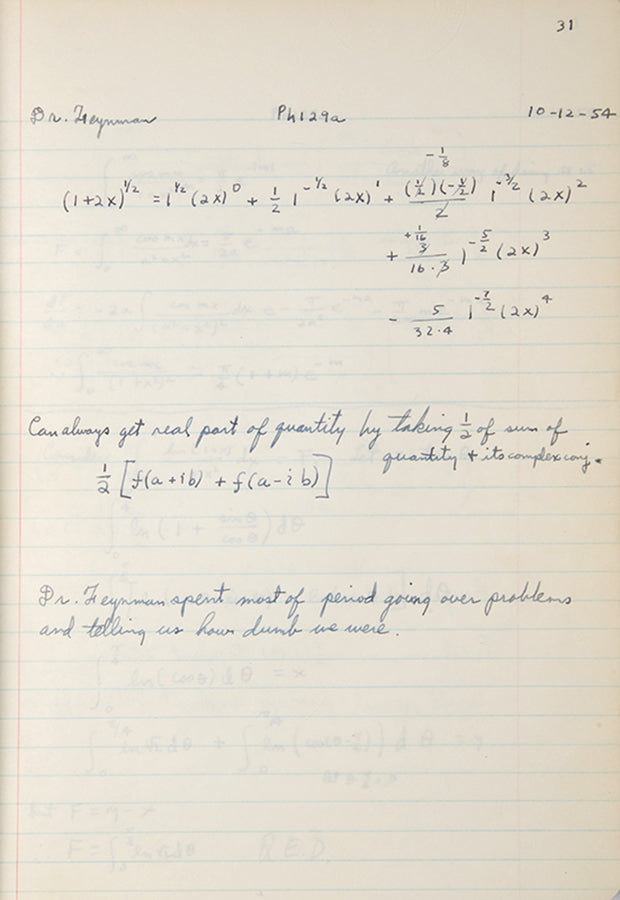 31
Dr. Feynman Ph129a 10-12-54
-1/8
(1+2x)^1/2 = 1^1/2 (2x)^0 + 1/2 1^-1/2 (2x)^1 + (1/2)(-1/2)/2 1^-3/2 (2x)^2
+1/16
+ 3/16·3 1^-5/2 (2x)^3
- 5/32·4 1^-7/2 (2x)^4
Can always get real part of quantity by taking 1/2 of sum of
quantity + its complex conj.
1/2 [f(a+ib) + f(a-ib)]
Dr. Feynman spent most of period going over problems
and telling us how dumb we were.